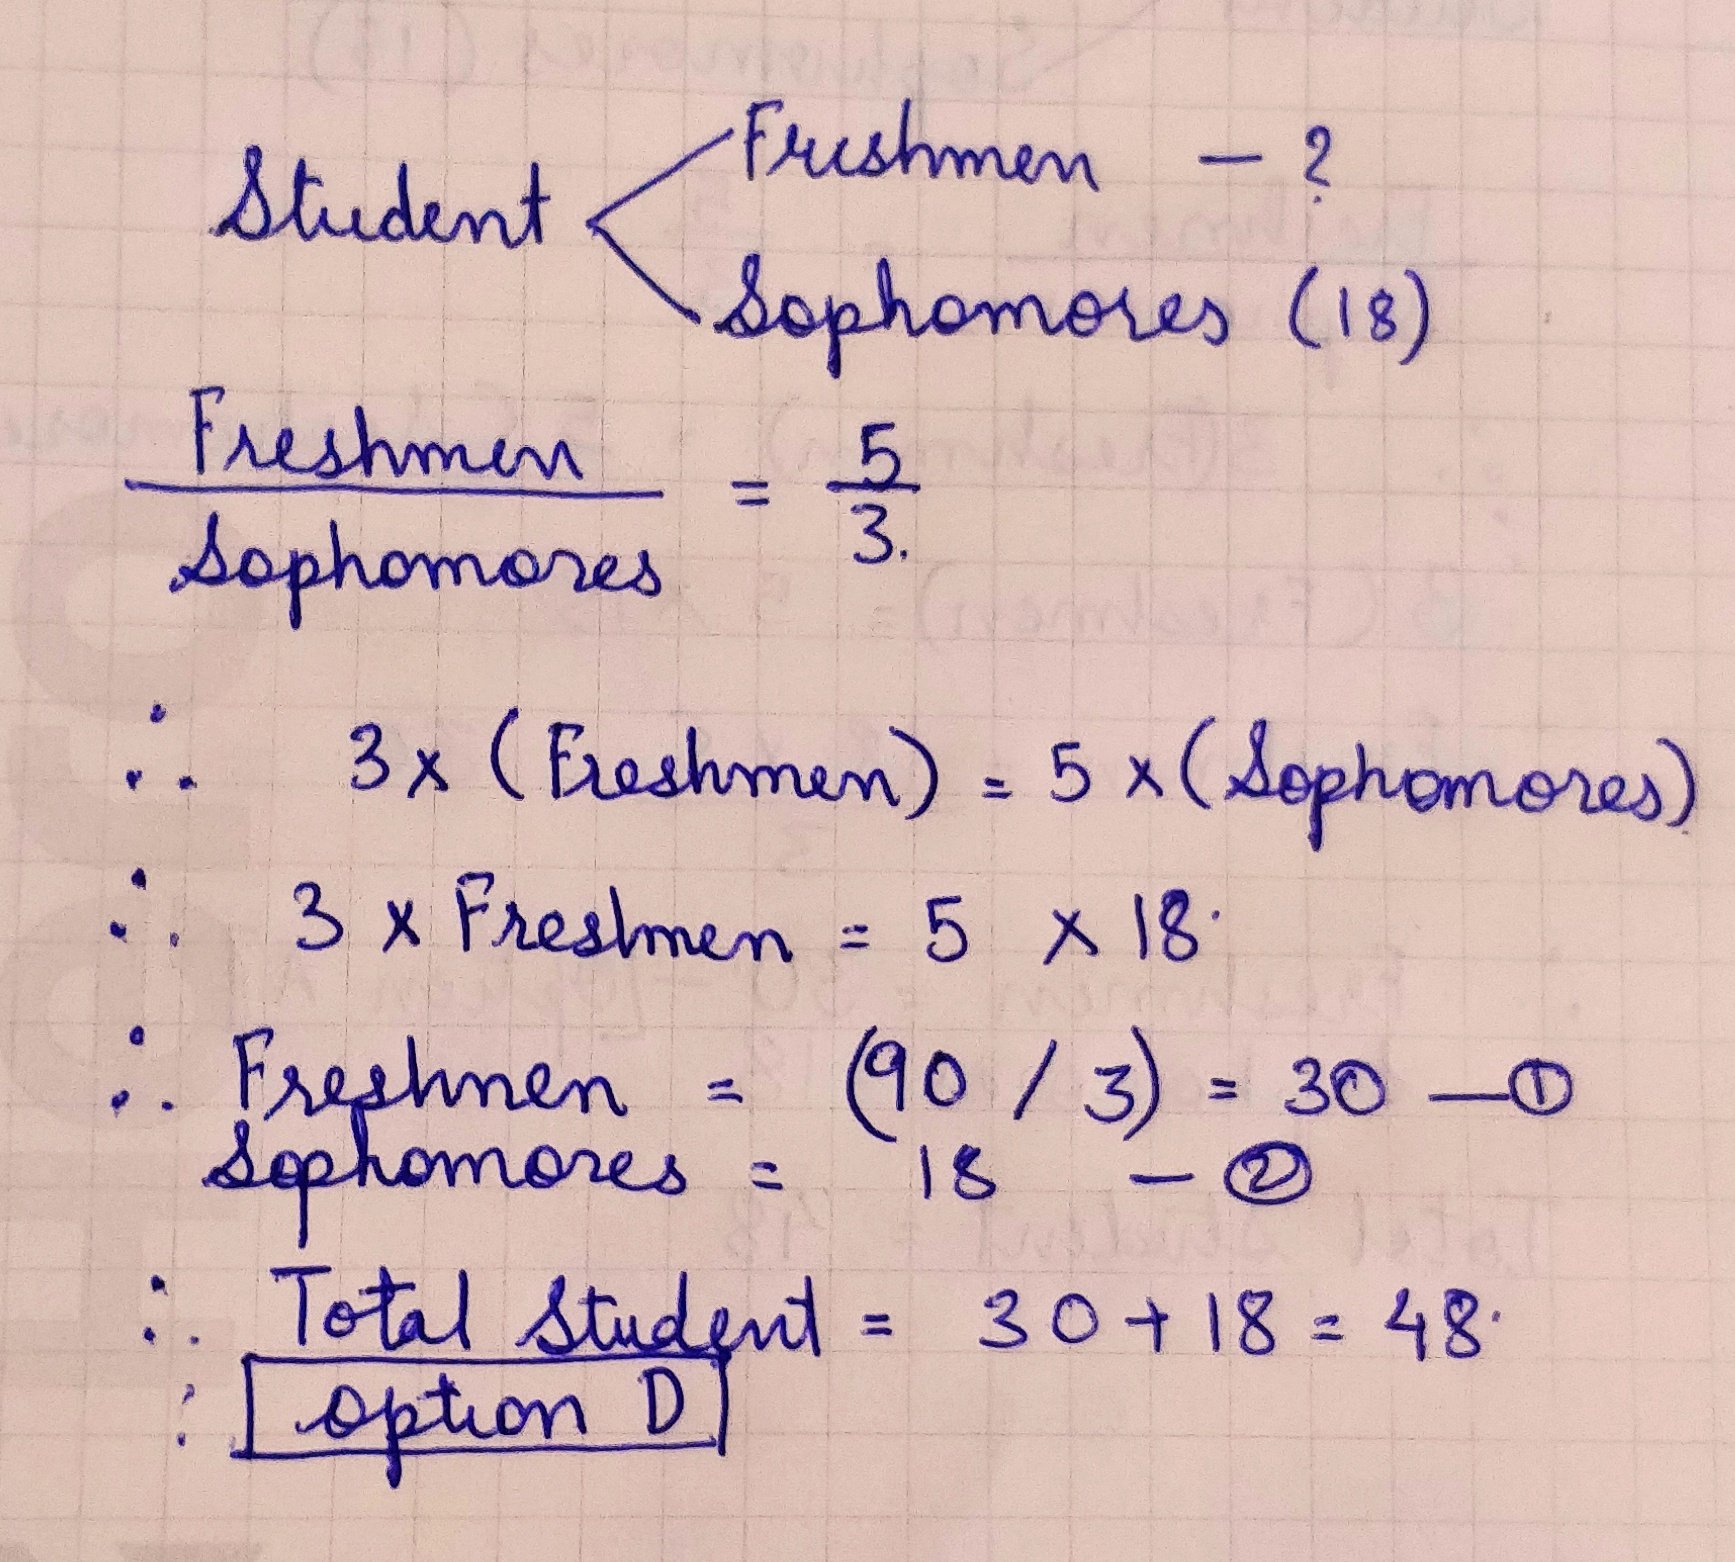 Freshmen - ?
Student
Sophomores (18)
Freshmen / Sophomores = 5 / 3.
∴ 3 x (Freshmen) = 5 x (Sophomores)
∴ 3 x Freshmen = 5 x 18.
∴ Freshmen = (90 / 3) = 30 — ①
Sophomores = 18 — ②
∴ Total Student = 30 + 18 = 48.
: Option D